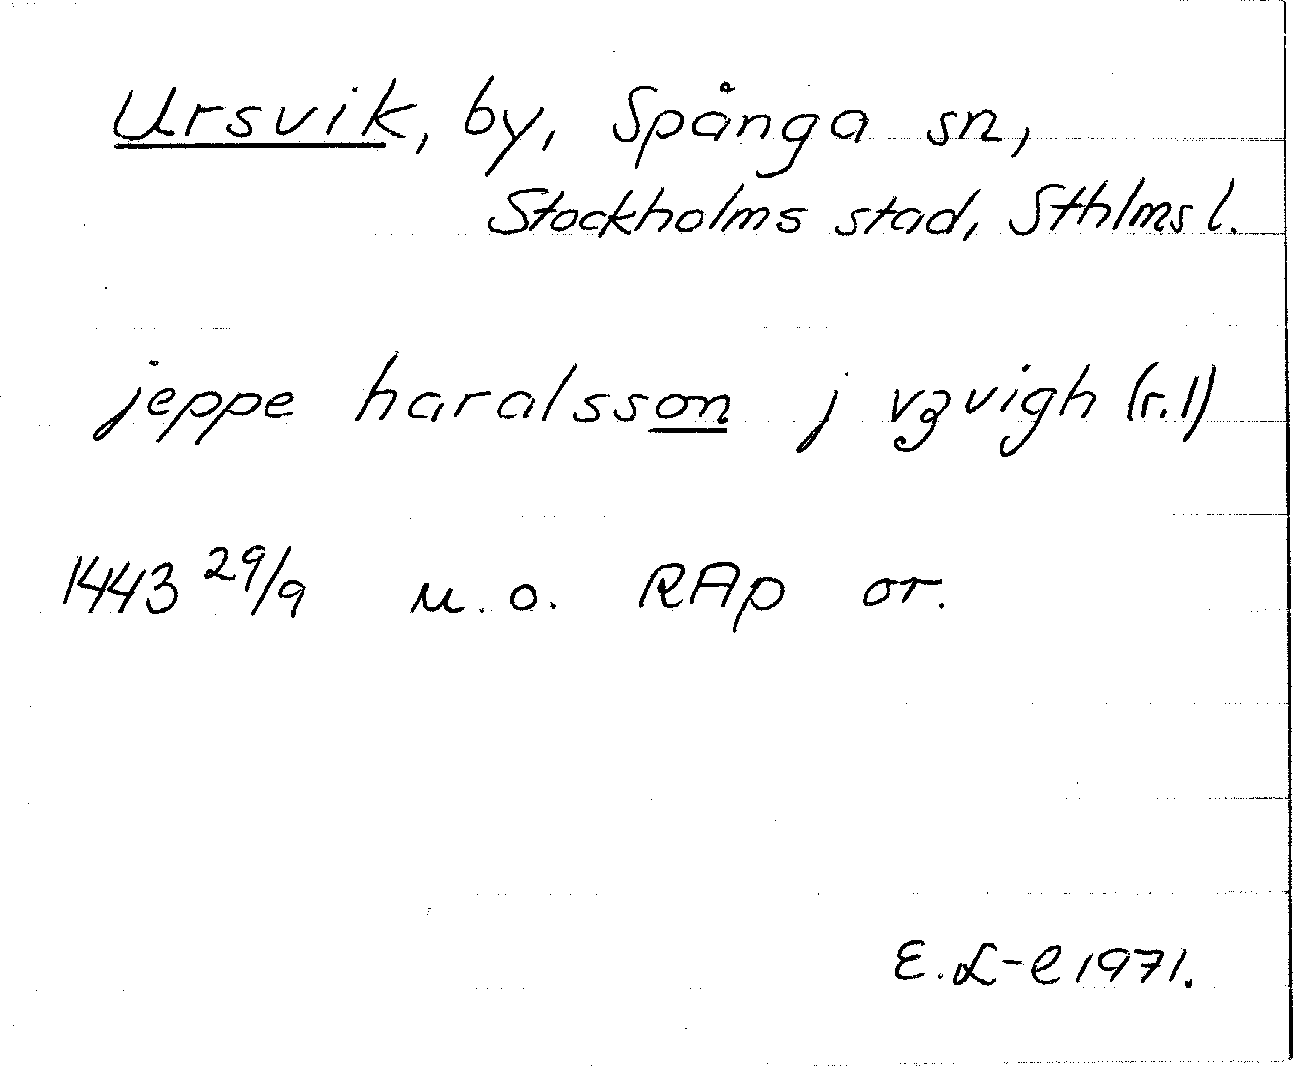 Ursvik, by, Spånga sn,
Stockholms stad, Sthlms l.
jeppe haralsson j vʒvigh (r.1)
1443 29/9 u.o. RAp or.
E.L-e 1971.